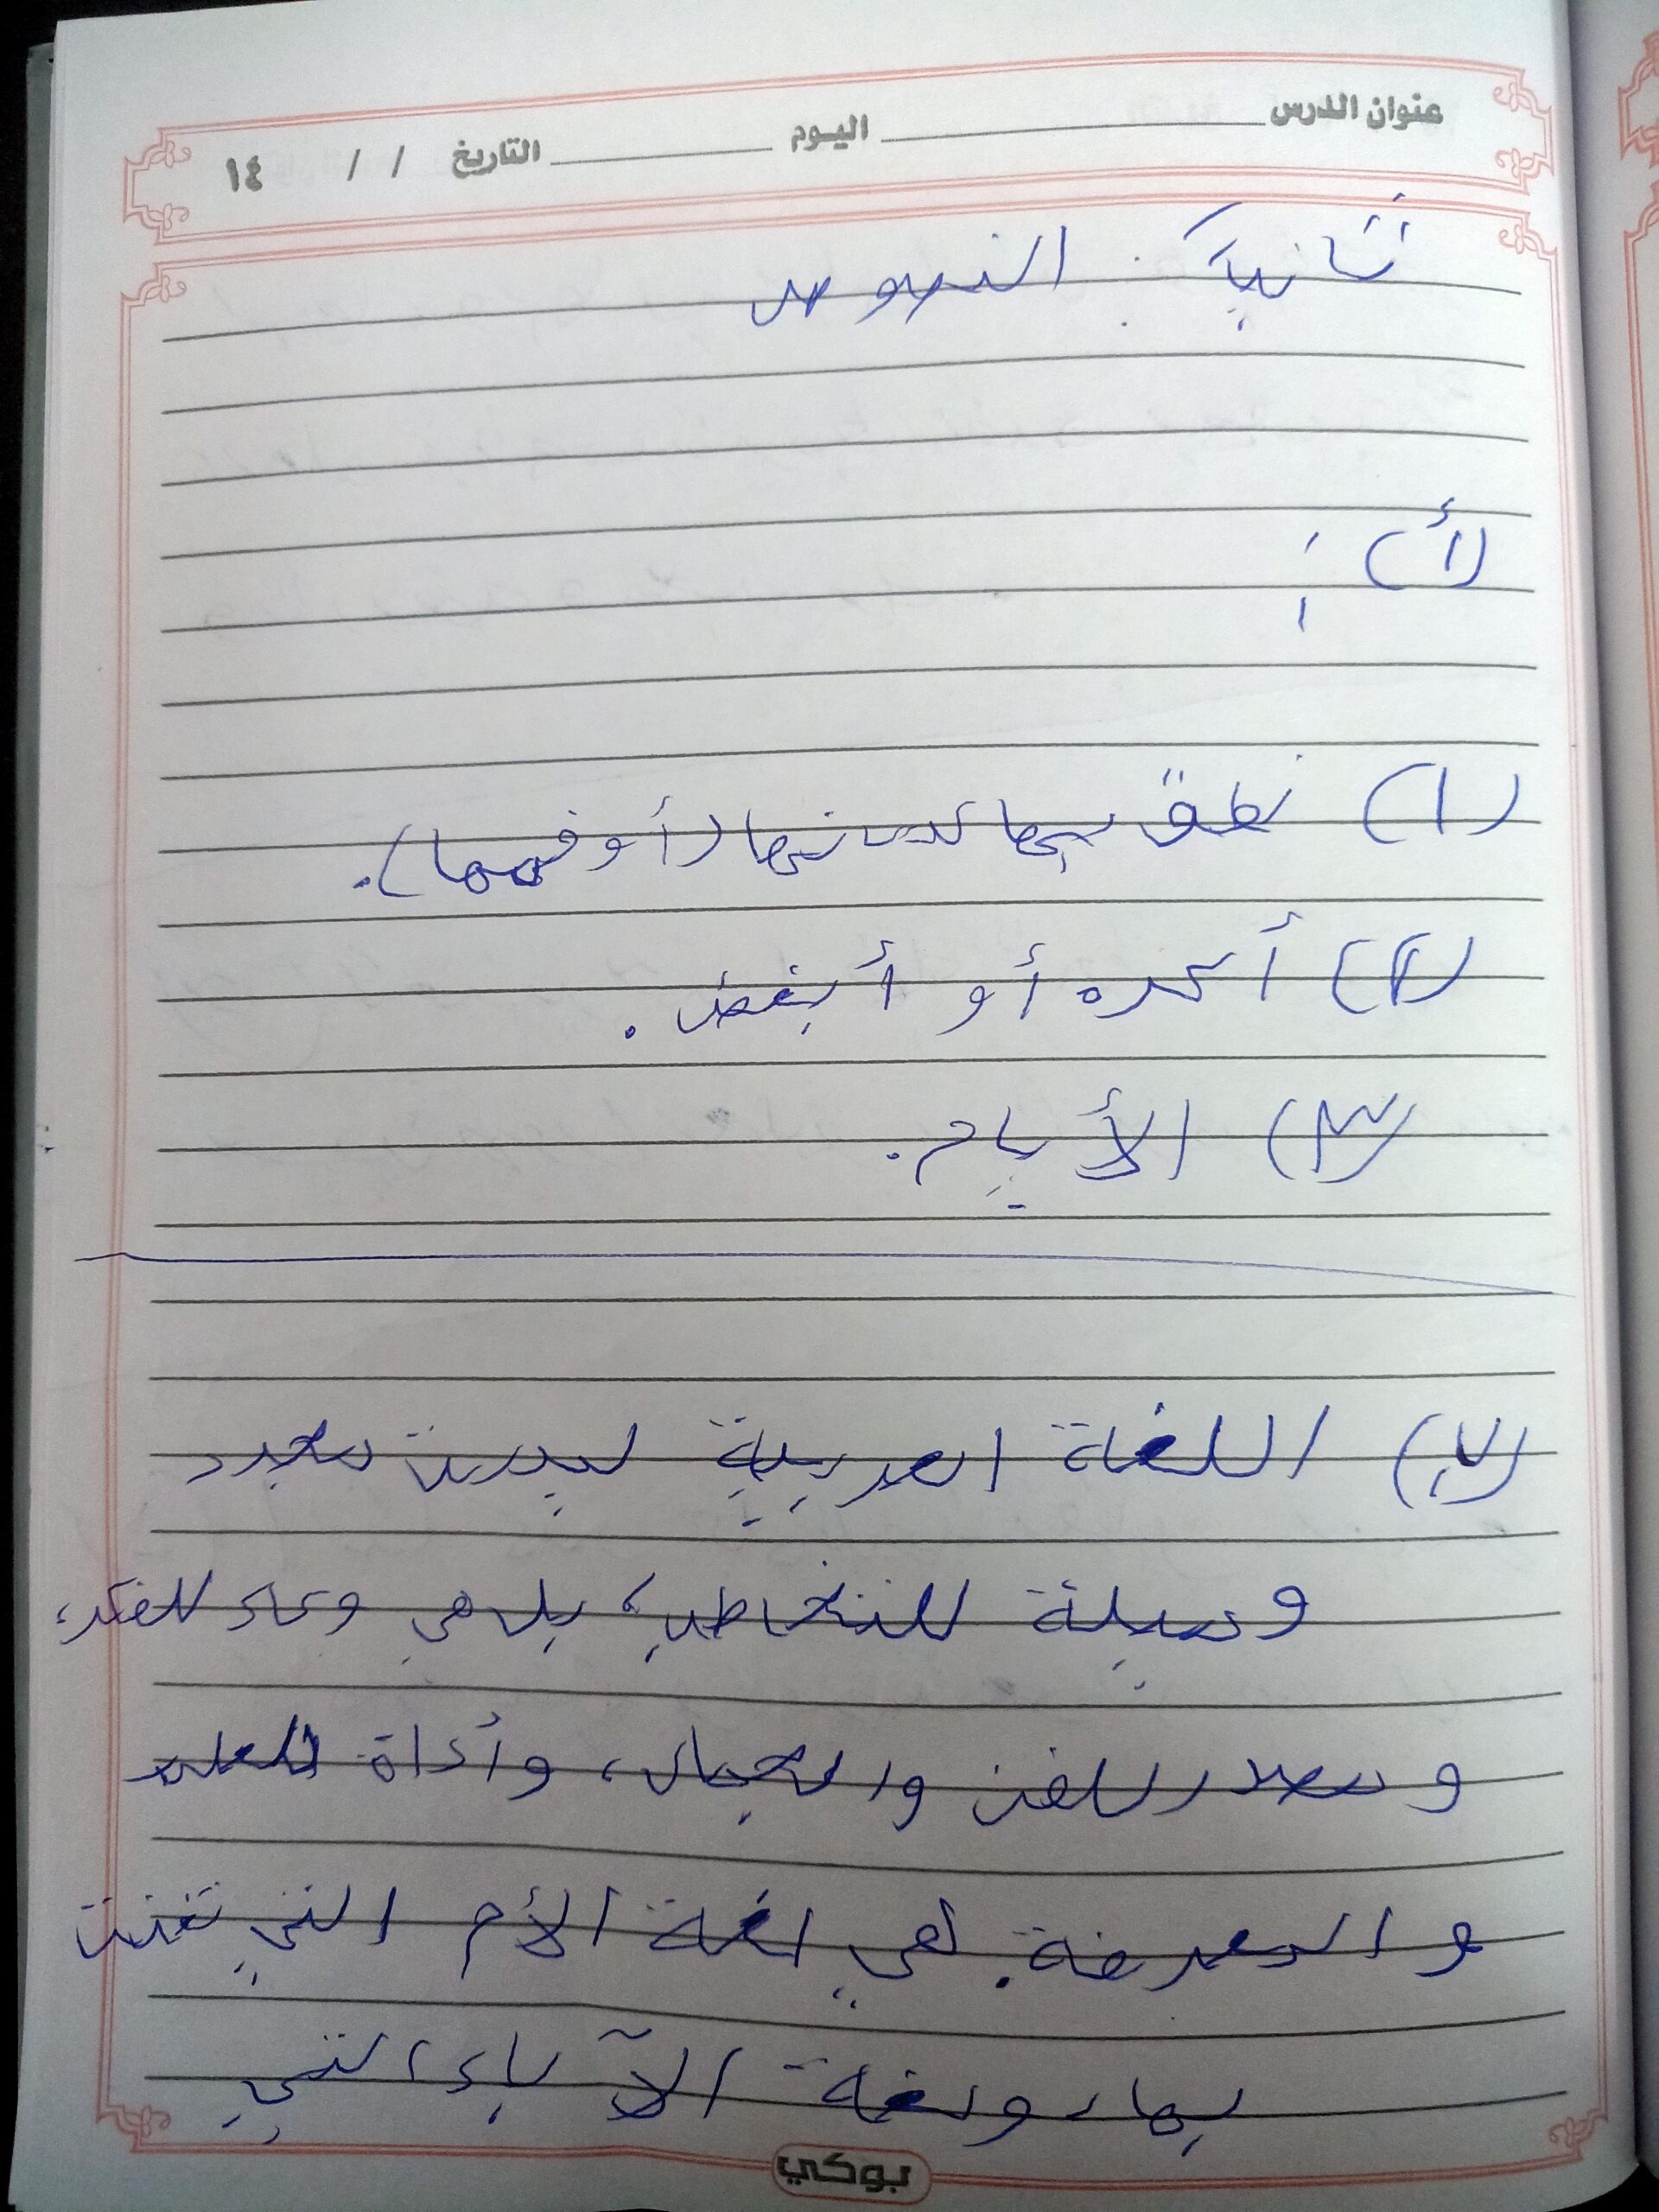 عنوان الدرس اليوم التاريخ / / ١٤
ثانيًا: النصوص
(أ):
(١) نطق بها لسانها (أو فمها).
(٢) أكره أو أبغض.
(٣) الأيام.
(ب) اللغة العربية ليست مجرد
وسيلة للتخاطب، بل هي وعاء للفكر،
ومصدر للفن والجمال، وأداة للعلم
والمعرفة. هي لغة الأم التي تغنت
بها، ولغة الآباء التي
بوكي